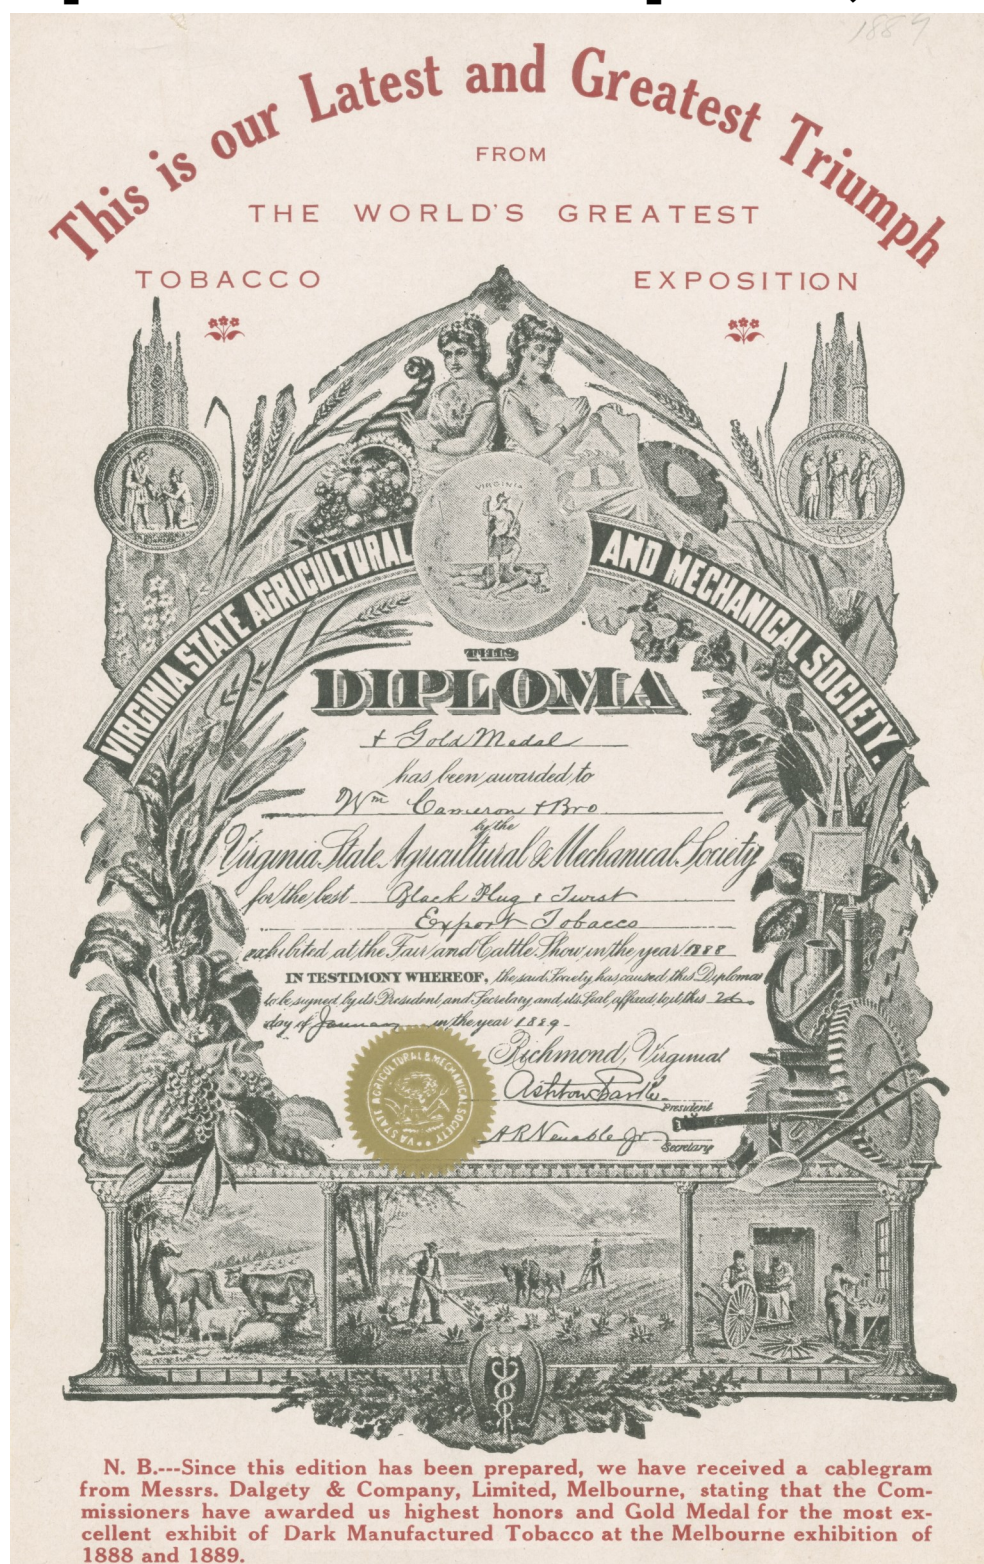 1889
This is our Latest and Greatest Triumph
FROM
THE WORLD'S GREATEST
TOBACCO EXPOSITION
VIRGINIA
VIRGINIA STATE AGRICULTURAL AND MECHANICAL SOCIETY.
THIS
DIPLOMA
+ Gold Medal
has been awarded to
Wm Cameron + Bro
by the
Virginia State Agricultural & Mechanical Society
for the best Black Plug + Twist
Export Tobacco
exhibited at the Fair and Cattle Show in the year 1888
IN TESTIMONY WHEREOF, the said Society has caused this Diploma
to be signed by its President and Secretary and its Seal affixed to it, this
day of January in the year 1889
Richmond, Virginia
Ashton
President
A R Venable Jr
Secretary
VA. STATE AGRICULTURAL & MECHANICAL SOCIETY
N. B.---Since this edition has been prepared, we have received a cablegram
from Messrs. Dalgety & Company, Limited, Melbourne, stating that the Com-
missioners have awarded us highest honors and Gold Medal for the most ex-
cellent exhibit of Dark Manufactured Tobacco at the Melbourne exhibition of
1888 and 1889.